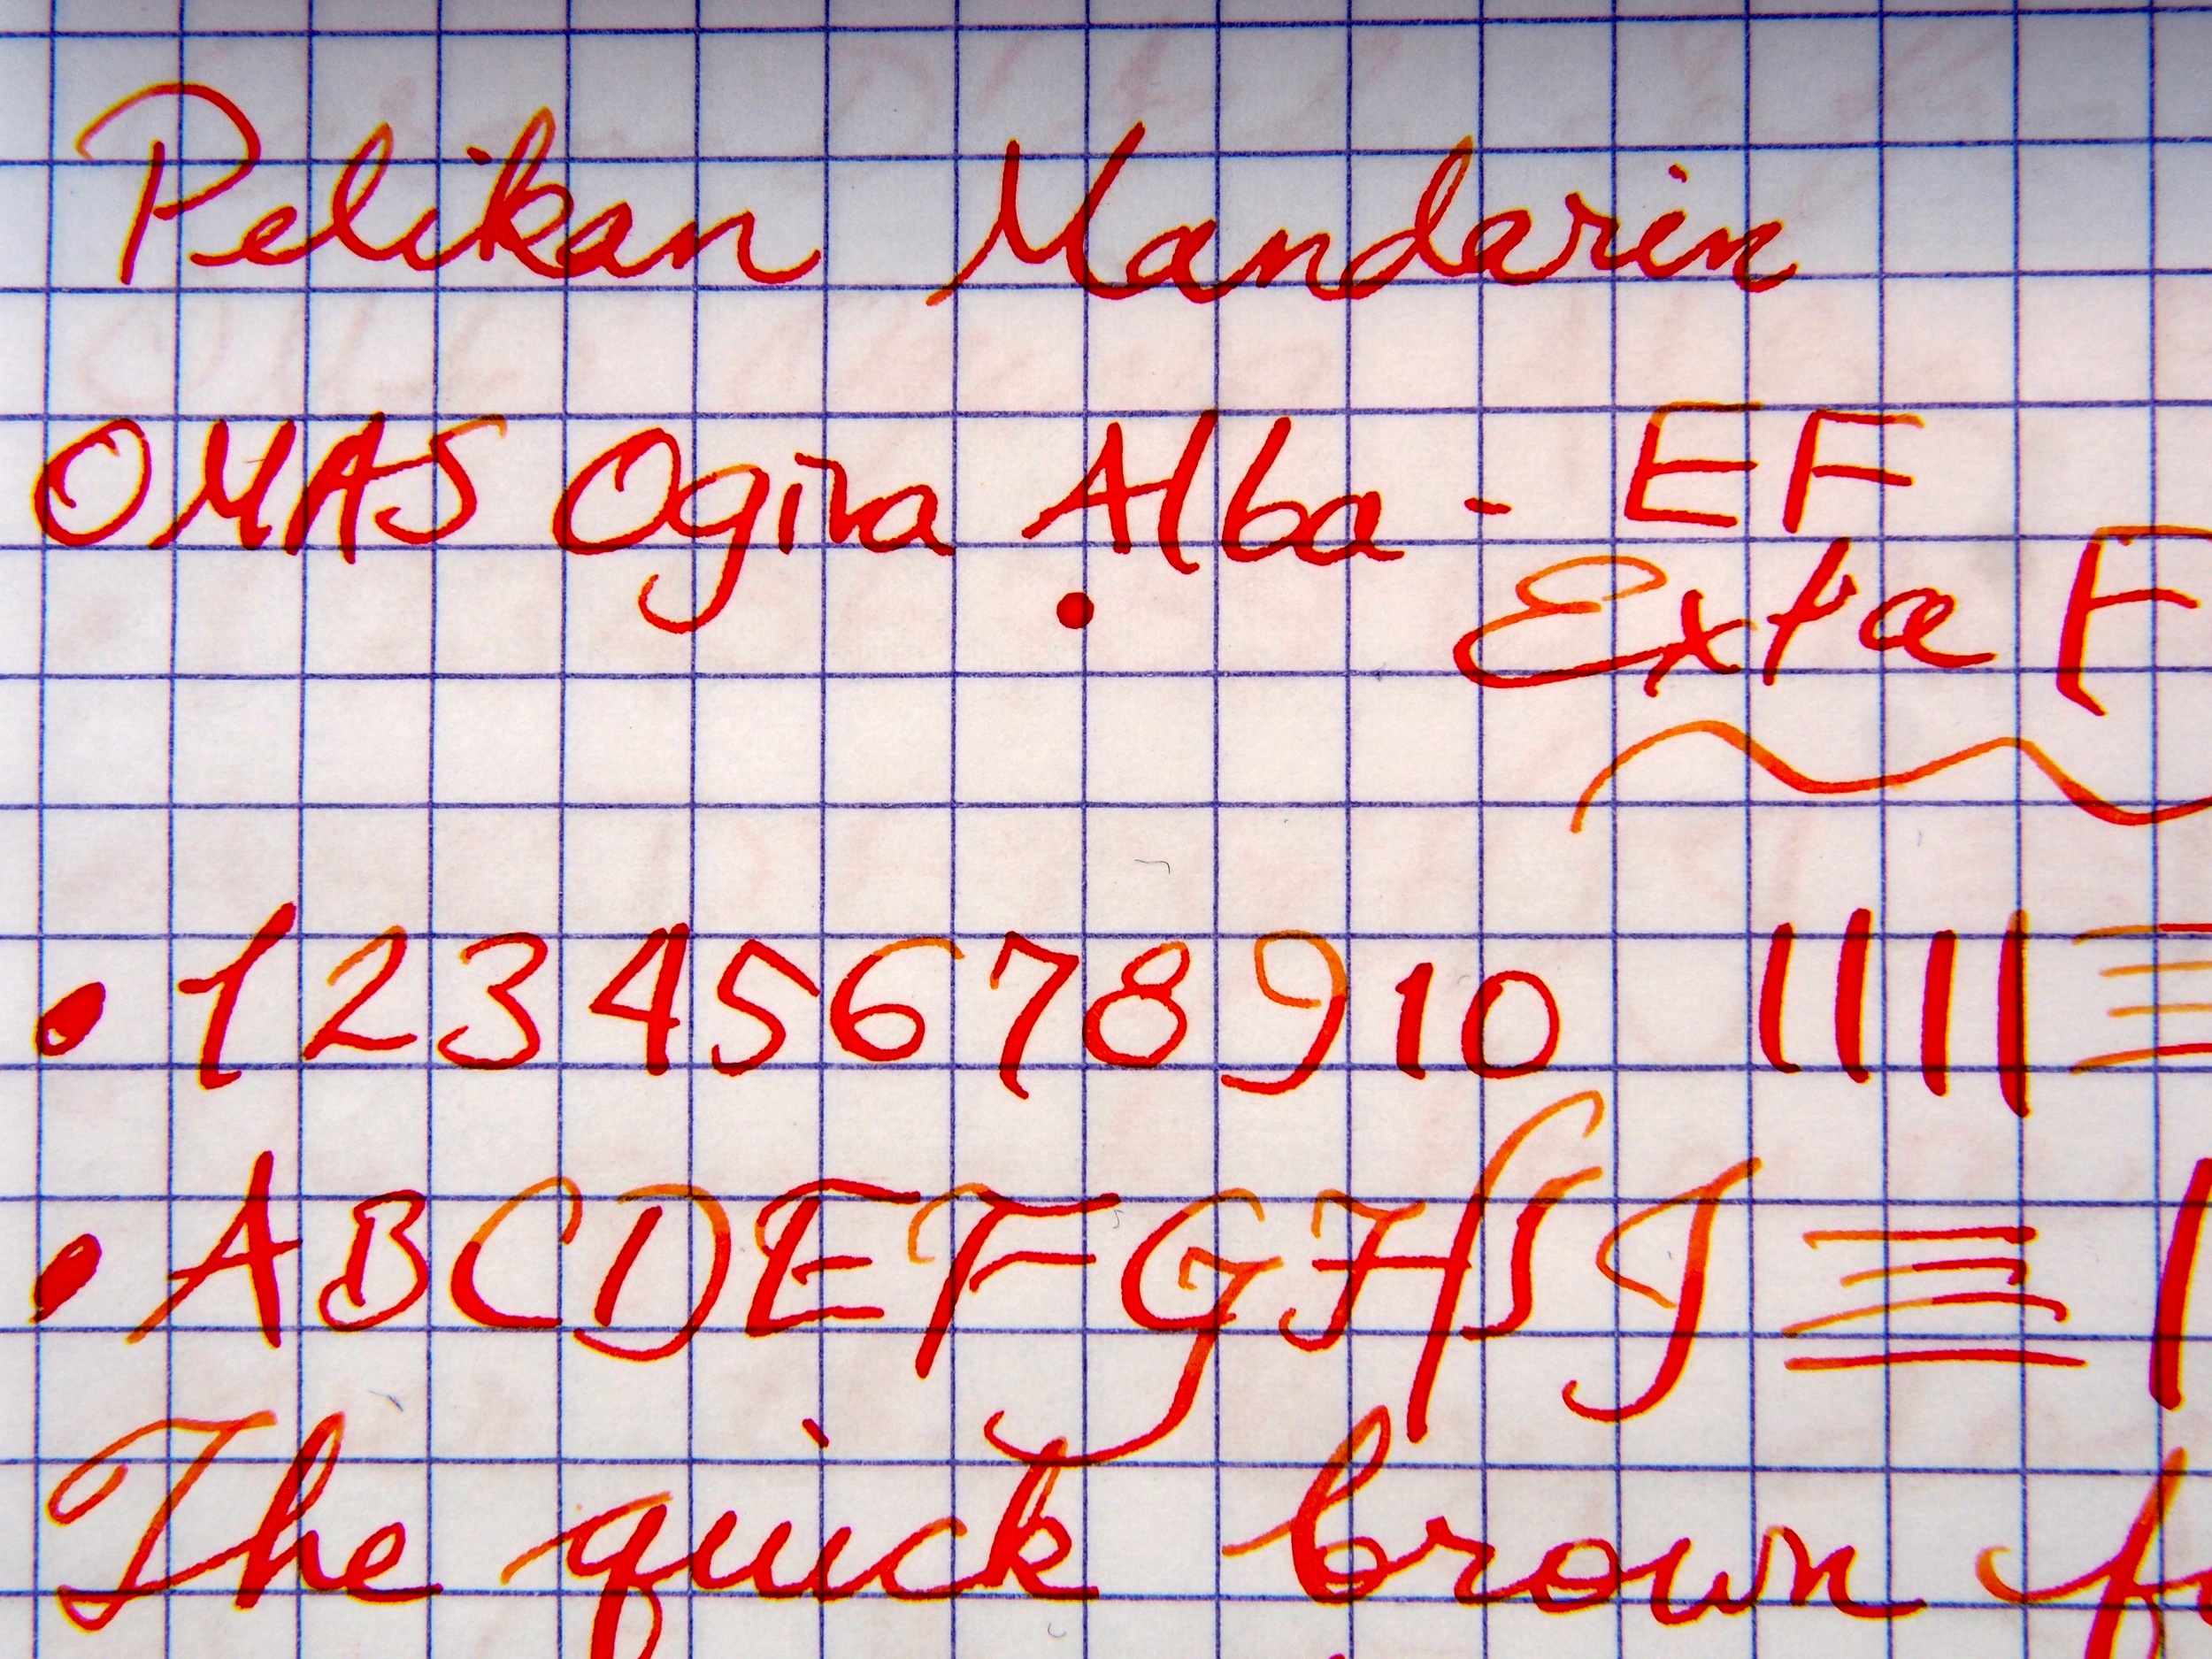 Pelikan Mandarin
OMAS Ogiva Alba - EF
Exta F
1 2 3 4 5 6 7 8 9 10
A B C D E F G H I J
The quick brown